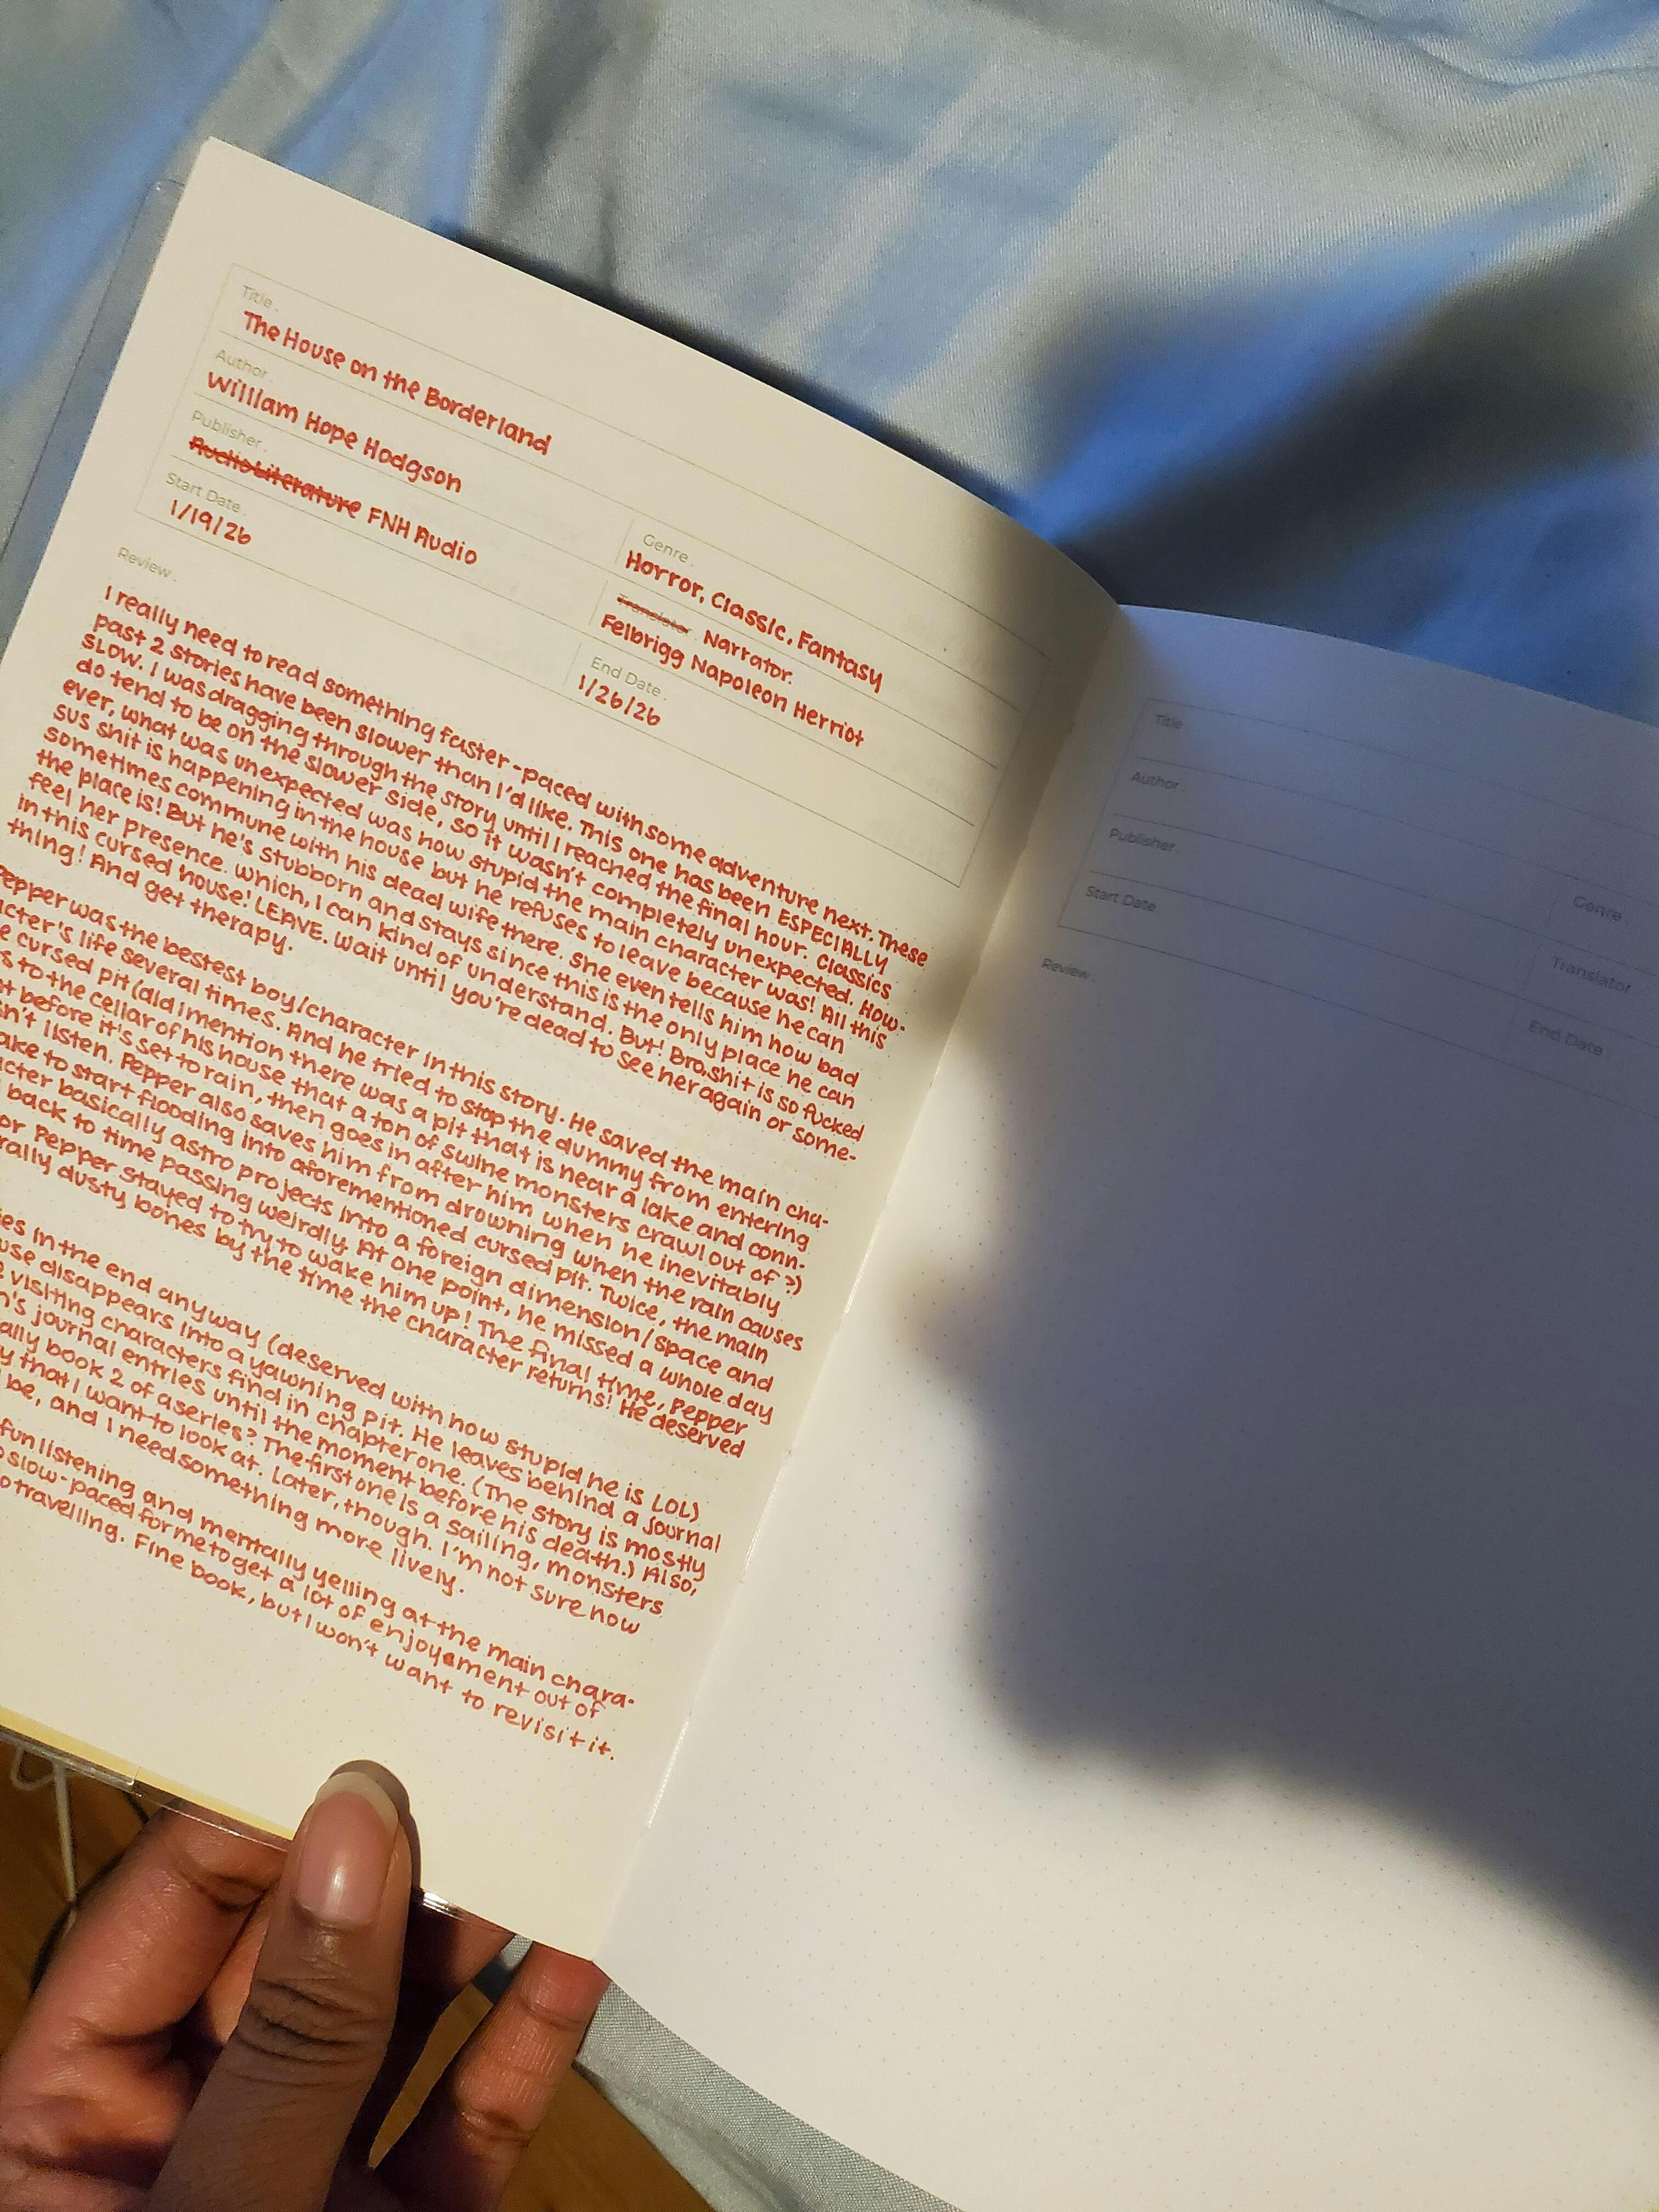 Title.
The House on the Borderland
Author.
William Hope Hodgson
Publisher.
AudioLiterature FNH Audio
Start Date.
1/19/26
Genre.
Horror, Classic, Fantasy
Translator Narrator.
Felbrigg Napoleon Herriot
End Date.
1/26/26
Review.
I really need to read something faster-paced with some adventure next. These
past 2 stories have been slower than I'd like. This one has been ESPECIALLY
SLOW. I was dragging through the story until I reached the final hour. Classics
do tend to be on the slower side, so it wasn't completely unexpected. How-
ever, what was unexpected was how stupid the main character was! All this
sus shit is happening in the house but he refuses to leave because he can
sometimes commune with his dead wife there. She even tells him how bad
the place is! But he's stubborn and stays since this is the only place he can
feel her presence. Which, I can kind of understand. But! Bro, shit is so fucked
in this cursed house! LEAVE. Wait until you're dead to see her again or some-
thing! And get therapy.
Pepper was the bestest boy/character in this story. He saved the main cha-
acter's life several times. And he tried to stop the dummy from entering
e cursed pit (did I mention there was a pit that is near a lake and conn-
s to the cellar of his house that a ton of swine monsters crawl out of?)
t before it's set to rain, then goes in after him when he inevitably
sn't listen. Pepper also saves him from drowning when the rain causes
ake to start flooding into aforementioned cursed pit. Twice, the main
acter basically astro projects into a foreign dimension/space and
back to time passing weirdly. At one point, he missed a whole day
or Pepper stayed to try to wake him up! The final time, Pepper
rally dusty bones by the time the character returns! He deserved
es in the end anyway (deserved with how stupid he is LOL)
use disappears into a yawning pit. He leaves behind a journal
e visiting characters find in chapter one. (The story is mostly
n's journal entries until the moment before his death.) Also,
ally book 2 of a series? The first one is a sailing, monsters
y that I want to look at. Later, though. I'm not sure how
l be, and I need something more lively.
fun listening and mentally yelling at the main chara-
o slow-paced for me to get a lot of enjoyement out of
o travelling. Fine book, but I won't want to revisit it.
Title
Author
Publisher
Start Date
Genre
Translator
End Date
Review